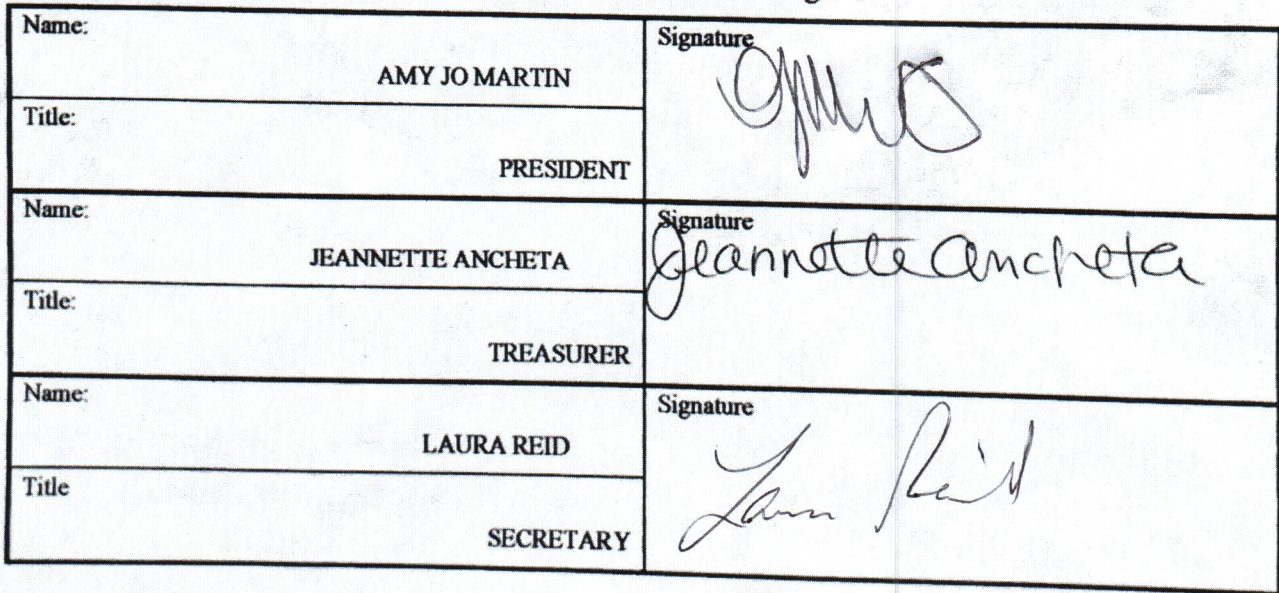 Name:
AMY JO MARTIN
Signature
Title:
PRESIDENT
Name:
JEANNETTE ANCHETA
Signature
Jeannette Ancheta
Title:
TREASURER
Name:
LAURA REID
Signature
Laura Reid
Title
SECRETARY